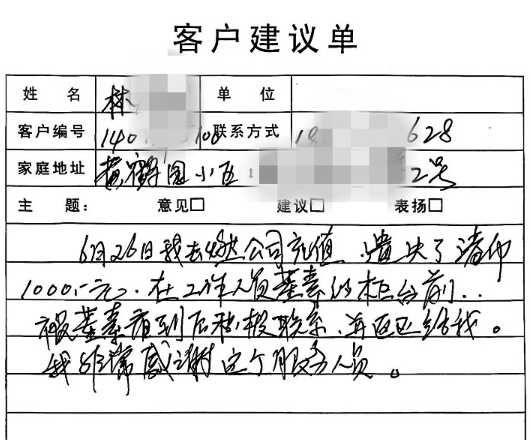 客户建议单
姓 名 林 单 位
客户编号 140 108 联系方式 628
家庭地址 黄鹤园小区 2号
主 题： 意见□ 建议□ 表扬□
6月26日我去燃气公司充值，遗失了
1000.-元，在工作人员董素的柜台前..
被董素看到后积极联系，并返还给我。
我非常感谢这个服务人员。